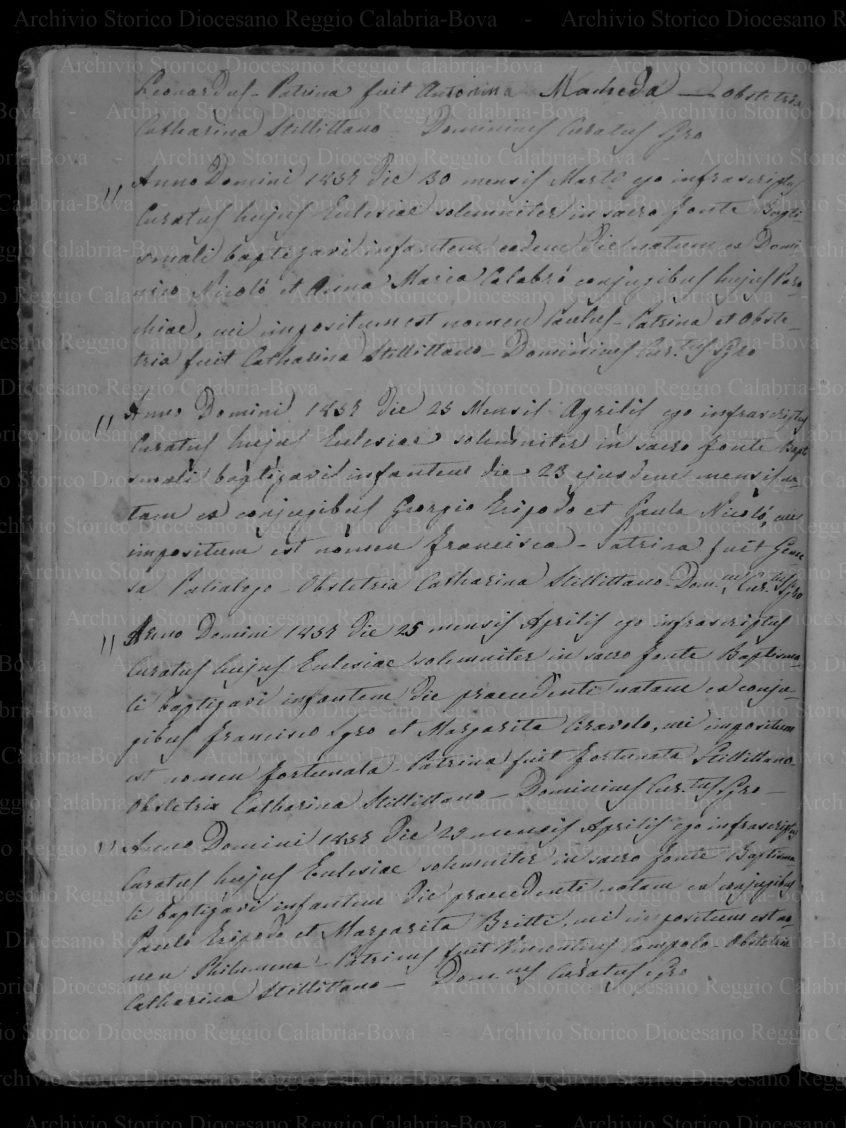 Leonardus - Patrina fuit Antonina Macheda - Obstetrix
Catharina Stillittano - Dominicus Curatus Sgro
" Anno Domini 1837 die 30 mensis Martii ego infrascriptus
Curatus hujus Eclesiae solemniter in sacro fonte Bapti-
smali baptizavi infantem eadem die natum ex Domi-
nico Nicolò et Anna Maria Calabrò conjugibus hujus Paro-
chiae, cui impositum est nomen Paulus - Patrina et Obste-
trix fuit Catharina Stillittano - Dominicus Cur.tus Sgro
" Anno Domini 1837 die 25 Mensis Aprilis ego infrascriptus
Curatus hujus Eclesiae solemniter in sacro fonte Bapti
smali baptizavi infantem die 23 ejusdem mensis na-
tam ex conjugibus Georgio Eripodo et Paula Nicolò, cui
impositum est nomen Francisca - Patrina fuit
Obstetrix Catharina Stillittano - Dom.nus Cur.tus Sgro
" Anno Domini 1837 die 25 mensis Aprilis ego infrascriptus
Curatus hujus Eclesiae solemniter in sacro fonte Baptisma-
li baptizavi infantem die praecedenti natam ex conju
gibus Francisco Sgro et Margarita, cui impositum
est nomen Fortunata - Patrina fuit Fortunata Stillittano -
Obstetrix Catharina Stillittano - Dominicus Cur.tus Sgro -
" Anno Domini 1837 die 29 mensis Aprilis ego infrascriptus
Curatus hujus Eclesiae solemniter in sacro fonte Baptisma-
li baptizavi infantem die praecedenti natam ex conjugibus
Paulo Eripodo et Margarita Britti, cui impositum est no-
men Philumena - Patrinus fuit Vincentius Campolo - Obstetrix
Catharina Stillittano - Dom.nus Curatus Sgro
Archivio Storico Diocesano Reggio Calabria-Bova